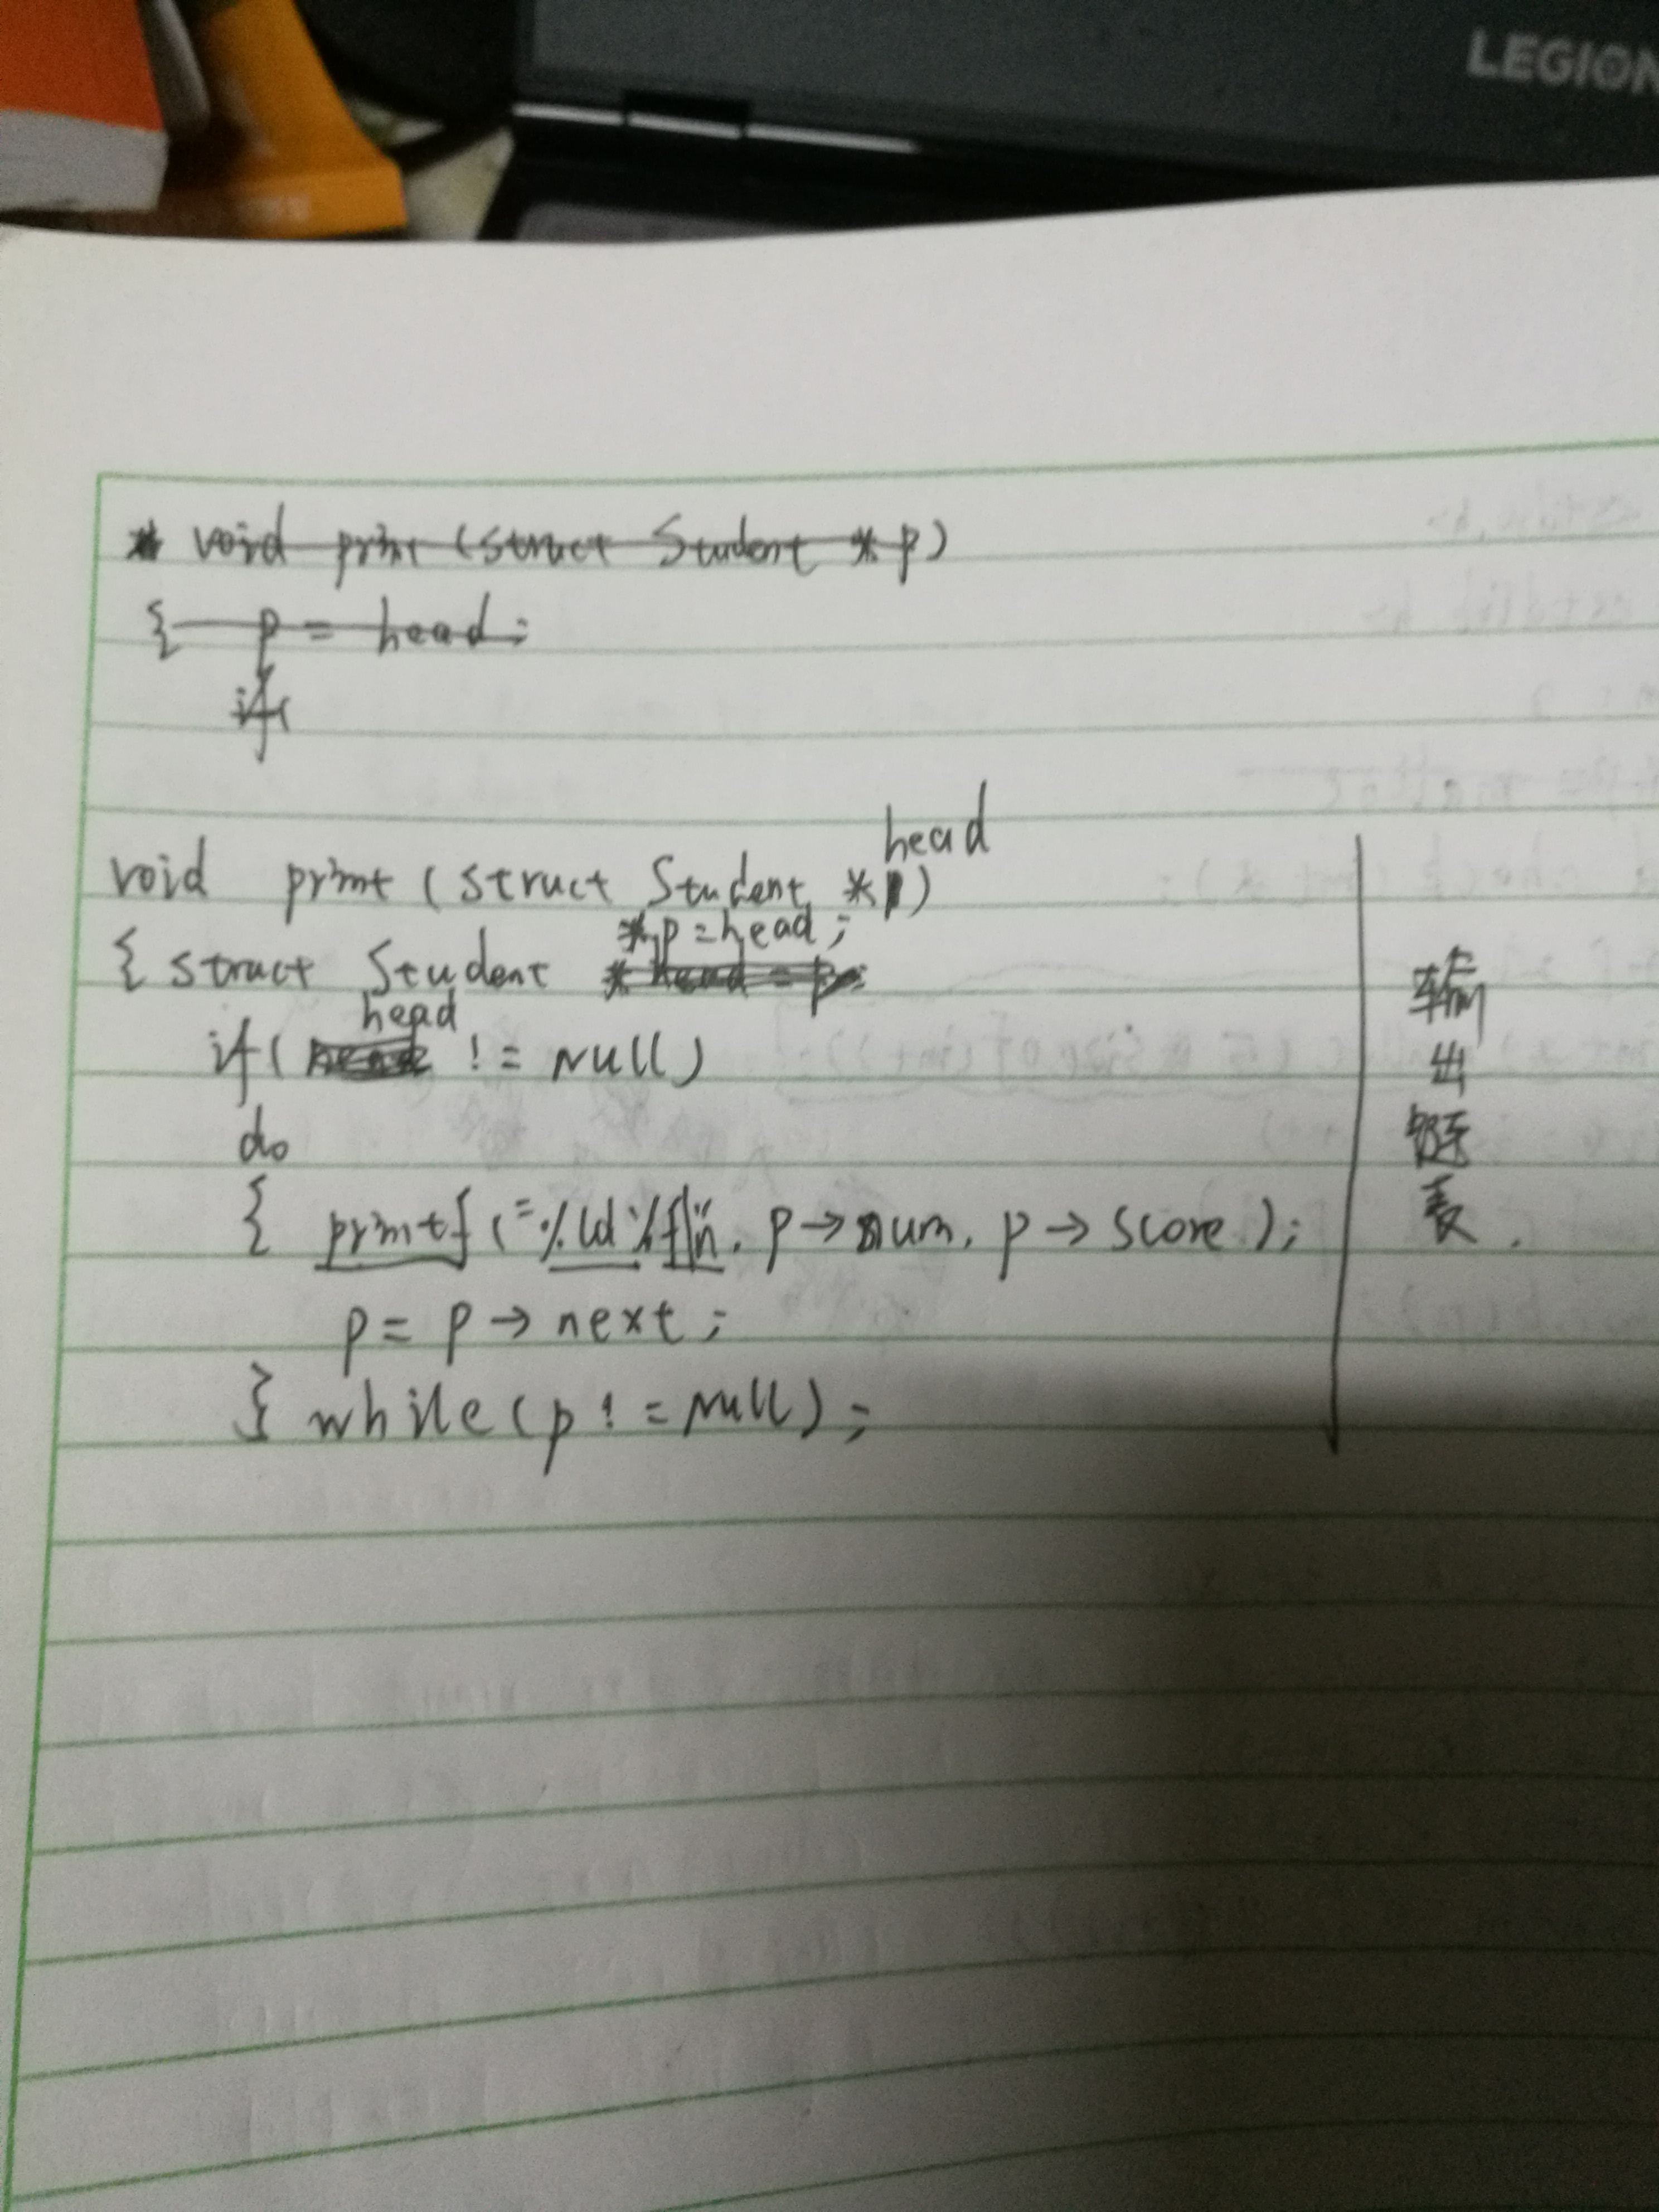 LEGION
void print (struct Student * p)
{ p = head;
if(
void print (struct Student * head)
{ struct Student *p = head;
if( head != Null)
do
{ printf ("%ld %f\n", p→num, p→score);
p = p→next;
} while (p != Null);
输
出
链
表.